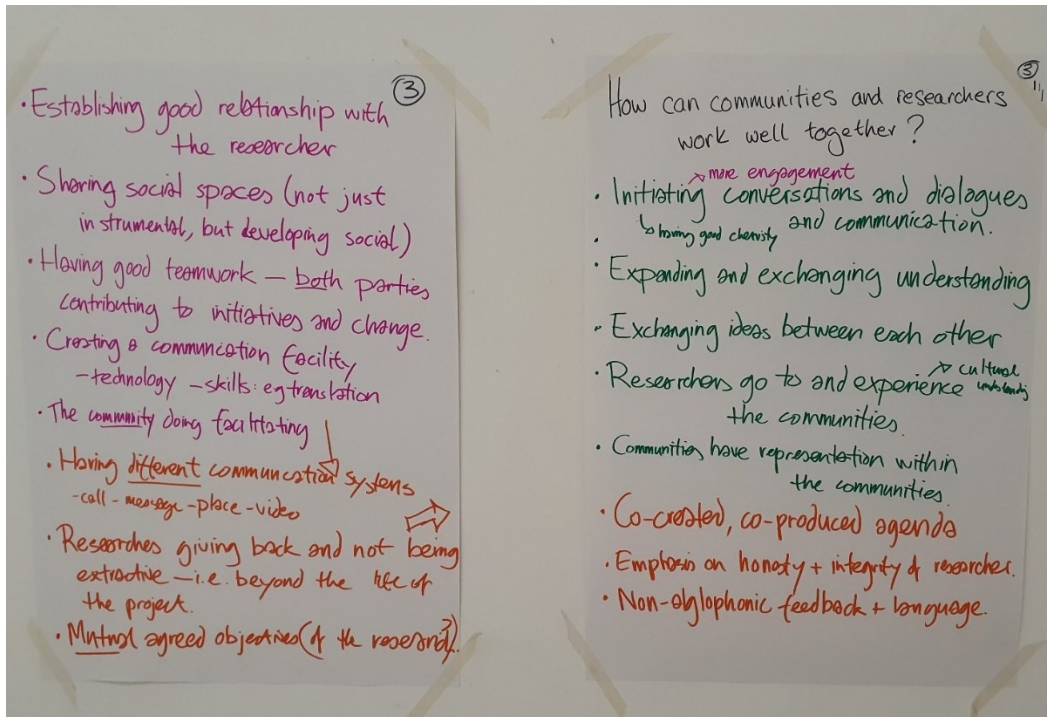 ③
• Establishing good relationship with
the researcher
• Sharing social spaces (not just
instrumental, but developing social)
• Having good teamwork — both parties
contributing to initiatives and change.
• Creating a communication facility
- technology - skills: eg translation
• The community doing facilitating
• Having different communcation systems
- call - message - place - video
• Researches giving back and not being
extractive — i.e. beyond the life of
the project.
• Mutual agreed objectives (of the research?).
③
How can communities and researchers
work well together?
more engagement
• Initiating conversations and dialogues
and communication.
having good
• Expanding and exchanging understanding
• Exchanging ideas between each other
• Researchers go to and experience
cultural
understanding
the communities.
• Communities have representation within
the communities.
• Co-created, co-produced agenda
• Emphasis on honesty + integrity of researcher.
• Non-alglophonic feedback + language.